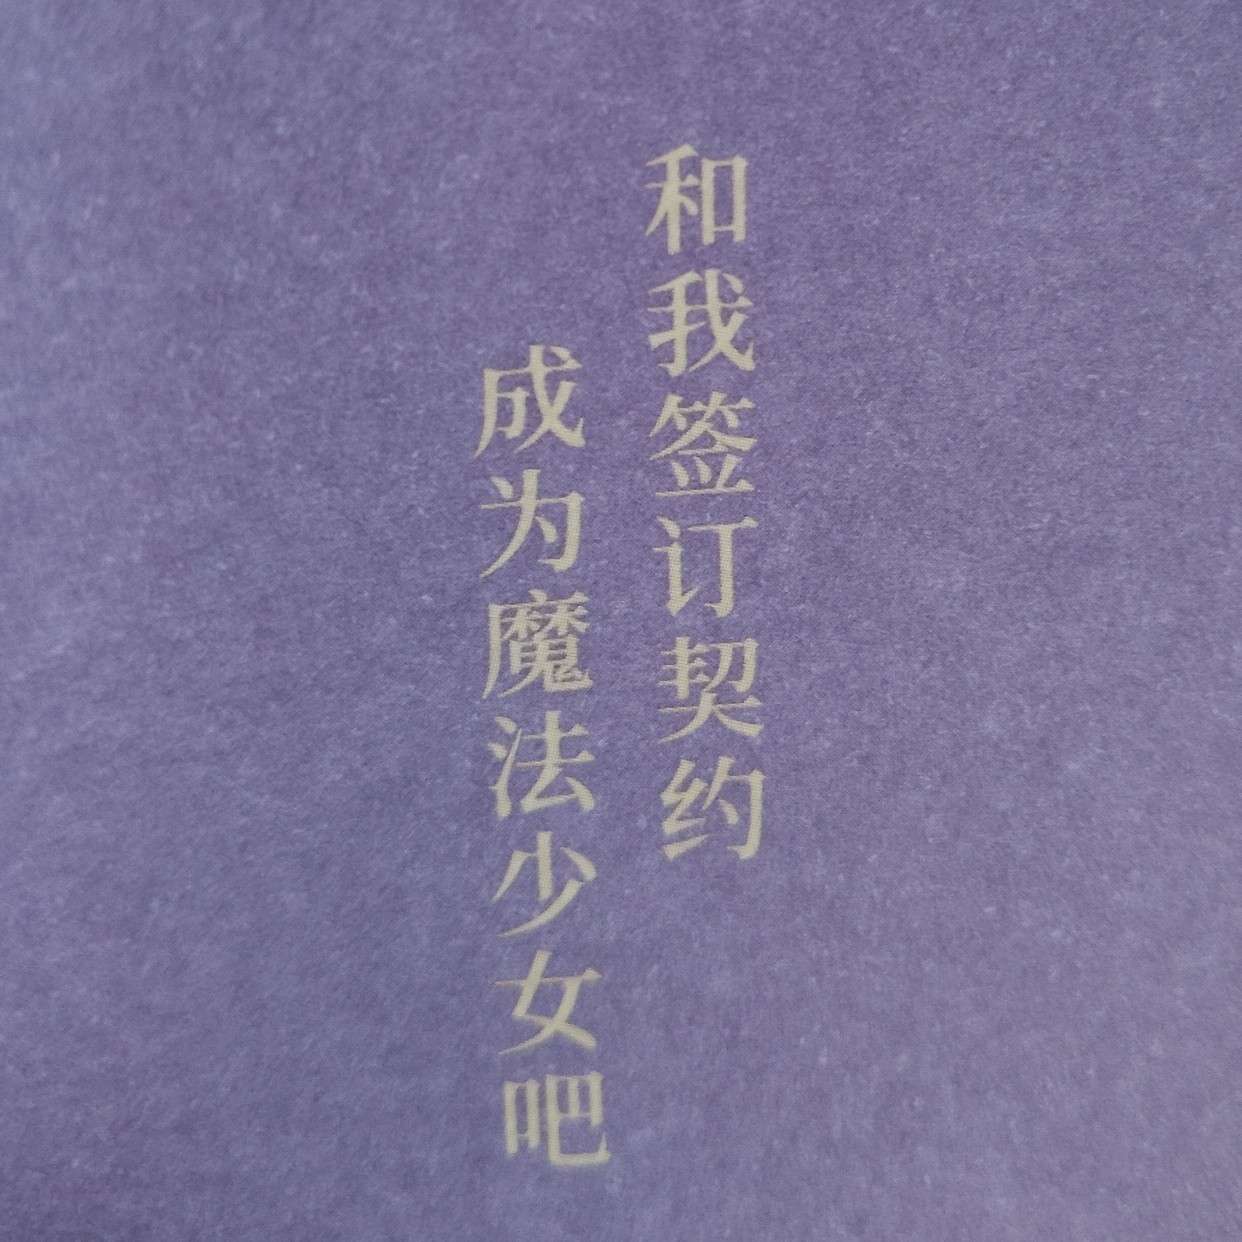 和我签订契约
成为魔法少女吧